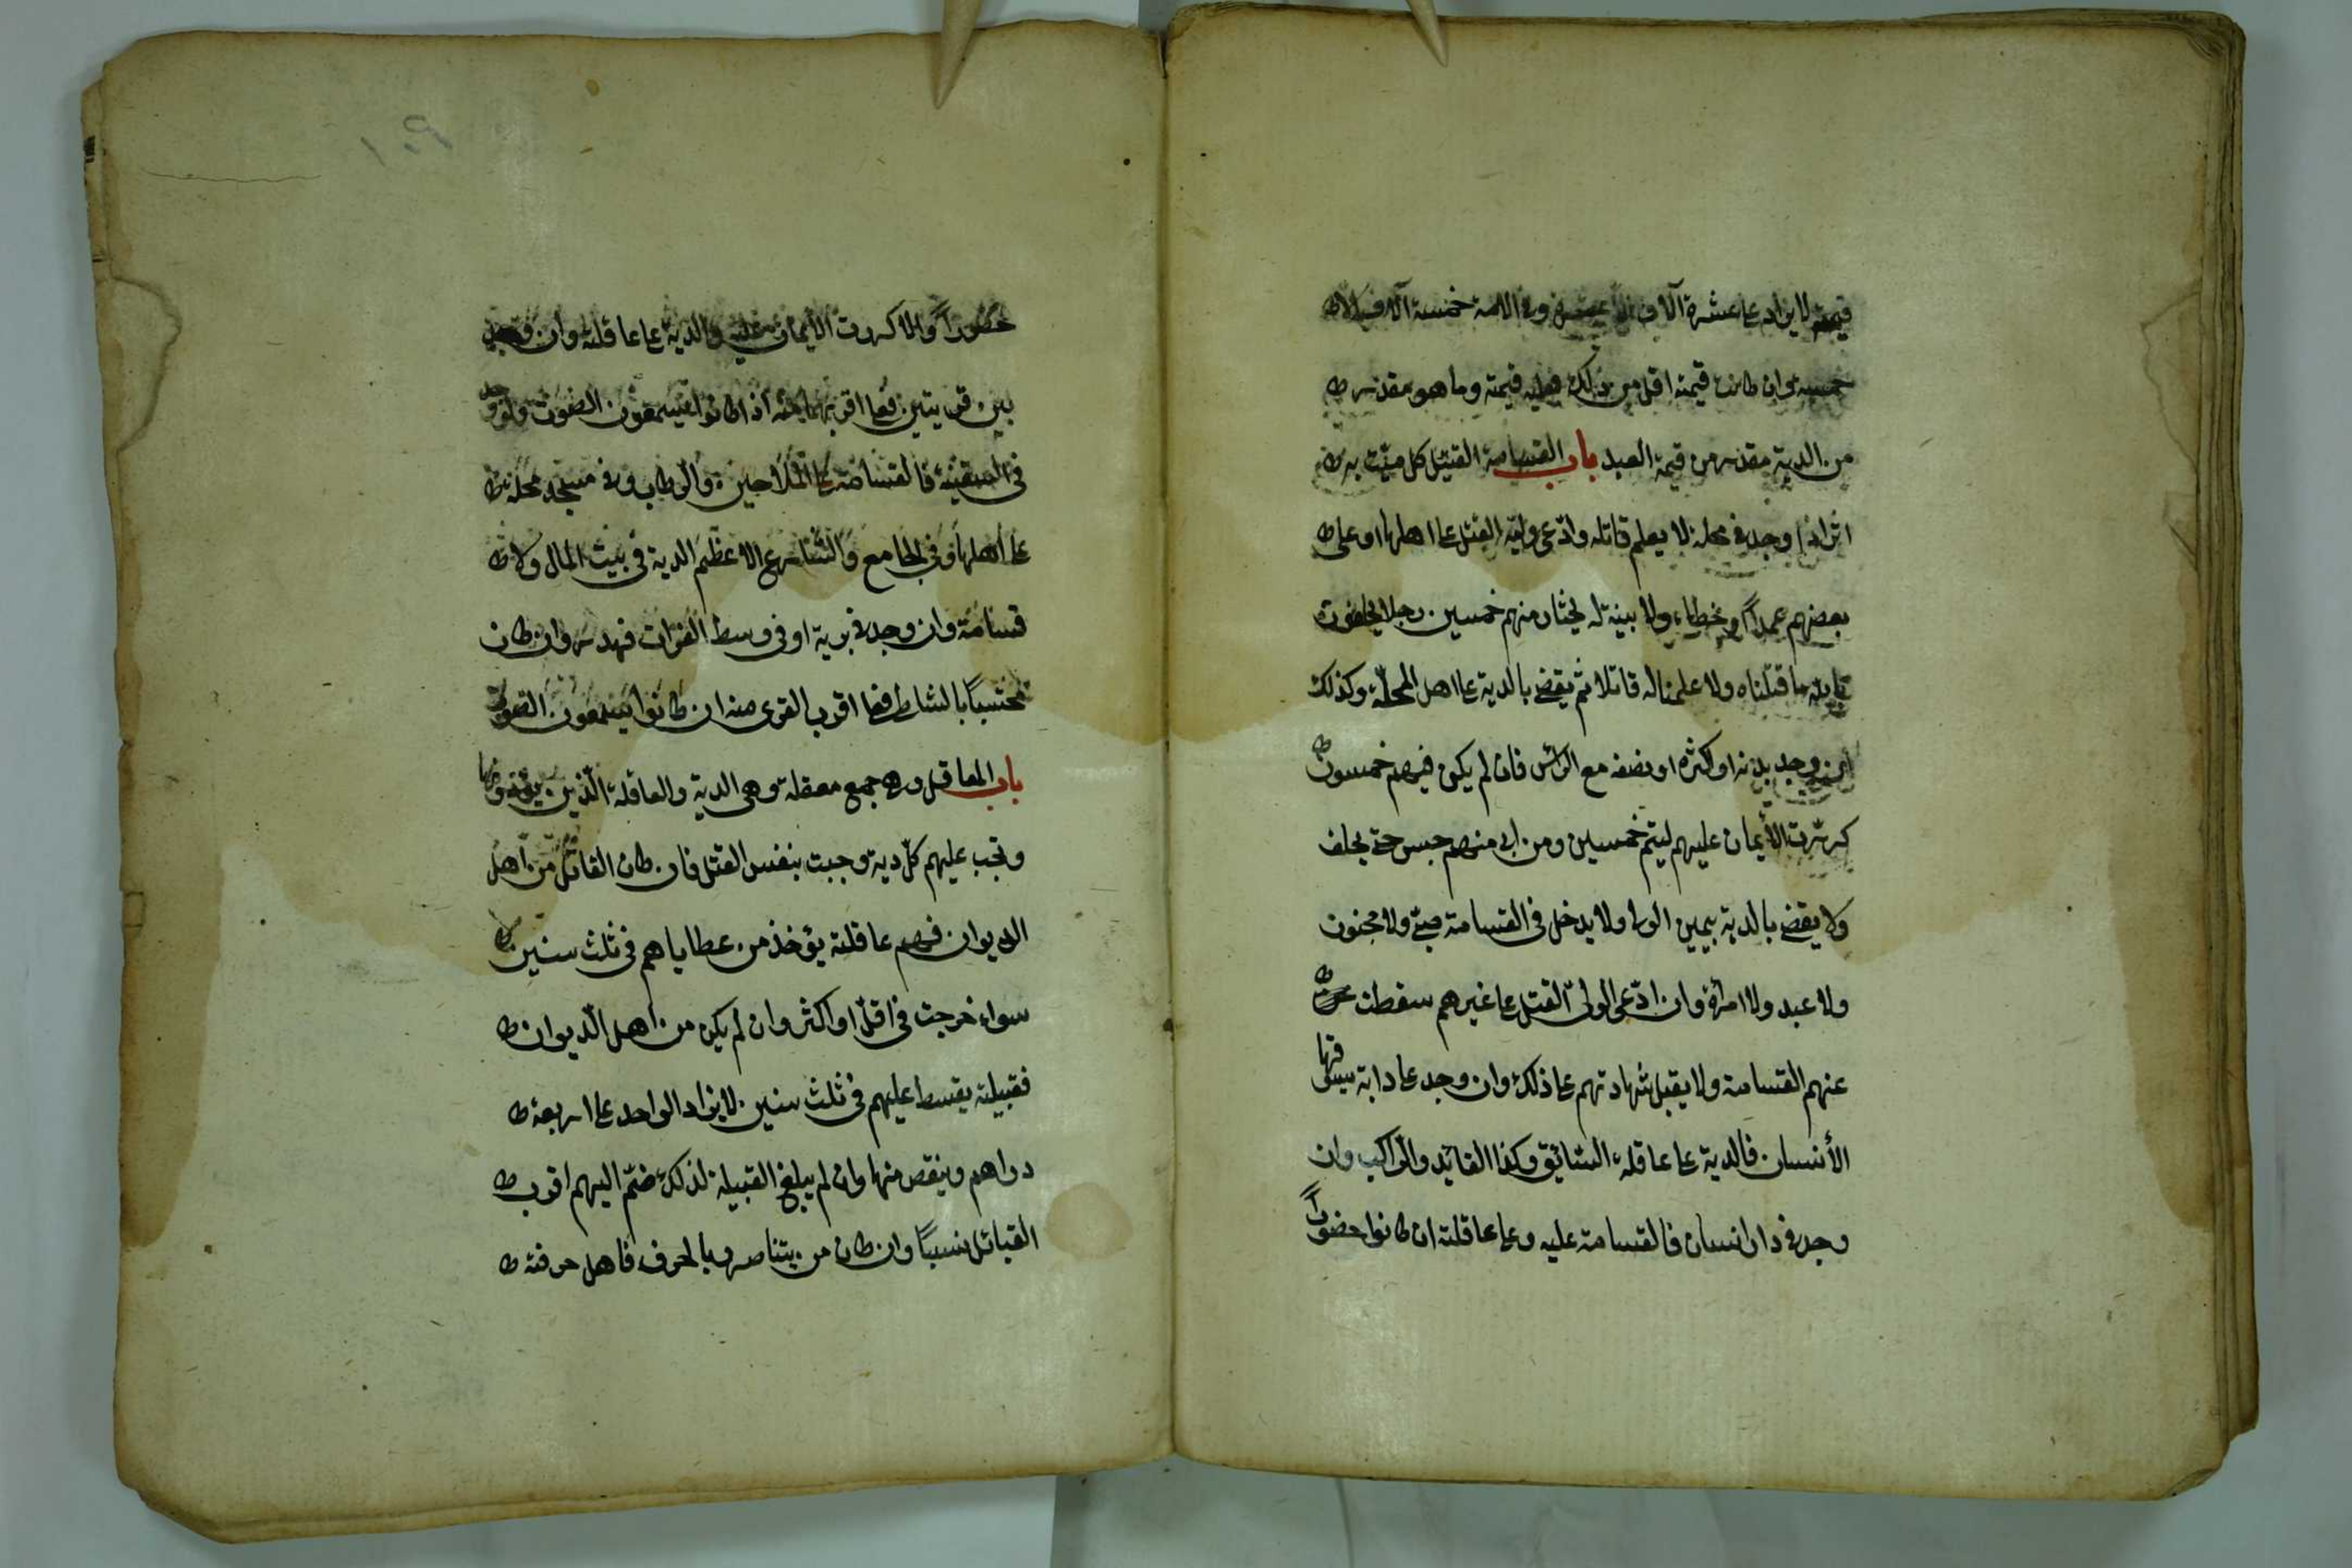 قيمته لا يزاد على عشرة آلاف الا عشرة وفى الامة خمسة آلاف الا
خمسة وان كانت قيمته اقل من ذلك فعليه قيمته وما هو مقدر
من الدية مقدر من قيمة العبد باب القسامة القتيل كل ميّت به
اثر اذا وجد فى محلة لا يعلم قاتله وادّعى وليّه القتل على اهلها او على
بعضهم عمداً او خطاء ولا بينة له يختار منهم خمسين رجلا يحلفون
بالله ما قتلناه ولا علمنا له قاتلا ثم يقضى بالدية على اهل المحلّة وكذلك
ان وجد بدنه او اكثره او نصفه مع الرأس فان لم يكن فيهم خمسون
كررت الأيمان عليهم ليتم خمسين ومن ابى منهم حبس حتى يحلف
ولا يقضى بالدية بيمين الولى ولا يدخل فى القسامة صبىّ ولا مجنون
ولا عبد ولا امرأة وان ادّعى الولىّ القتل على غيرهم سقطت
عنهم القسامة ولا يقبل شهادتهم على ذلك وان وجد على دابة يسوقها
الأنسان فالدية على عاقلة السائق وكذا القائد والراكب وان
وجد فى دار انسان فالقسامة عليه وعلى عاقلته ان كانوا حضوراً
١٠٩
حضوراً والا كررت الأيمان عليه والدية على عاقلته وان وجد
بين قريتين فعلى اقربهما اذا كانوا يسمعون الصوت ولو وجد
فى السفينة فالقسامة على الملاحين والركاب وفى مسجد محلة
على اهلها وفى الجامع والشارع الاعظم الدية فى بيت المال ولا
قسامة وان وجد فى برية او فى وسط الفرات فهدر وان كان
محتسباً بالشاطى فعلى اقرب القرى منه ان كانوا يسمعون الصوت
باب المعاقل وهى جمع معقلة وهى الدية والعاقلة الذين يؤدونها
وتجب عليهم كلّ دية وجبت بنفس القتل فان كان القاتل من اهل
الديوان فهم عاقلته يؤخذ من عطاياهم فى ثلث سنين
سواء خرجت فى اقلّ او اكثر وان لم يكن من اهل الدّيوان
فقبيلته يقسط عليهم فى ثلث سنين لا يزاد الواحد على اربعة
دراهم وينقص منها وان لم يبلغ القبيلة لذلك ضمّ اليهم اقرب
القبائل نسباً وان كان من يتناصرو بالحرف فاهل حرفته